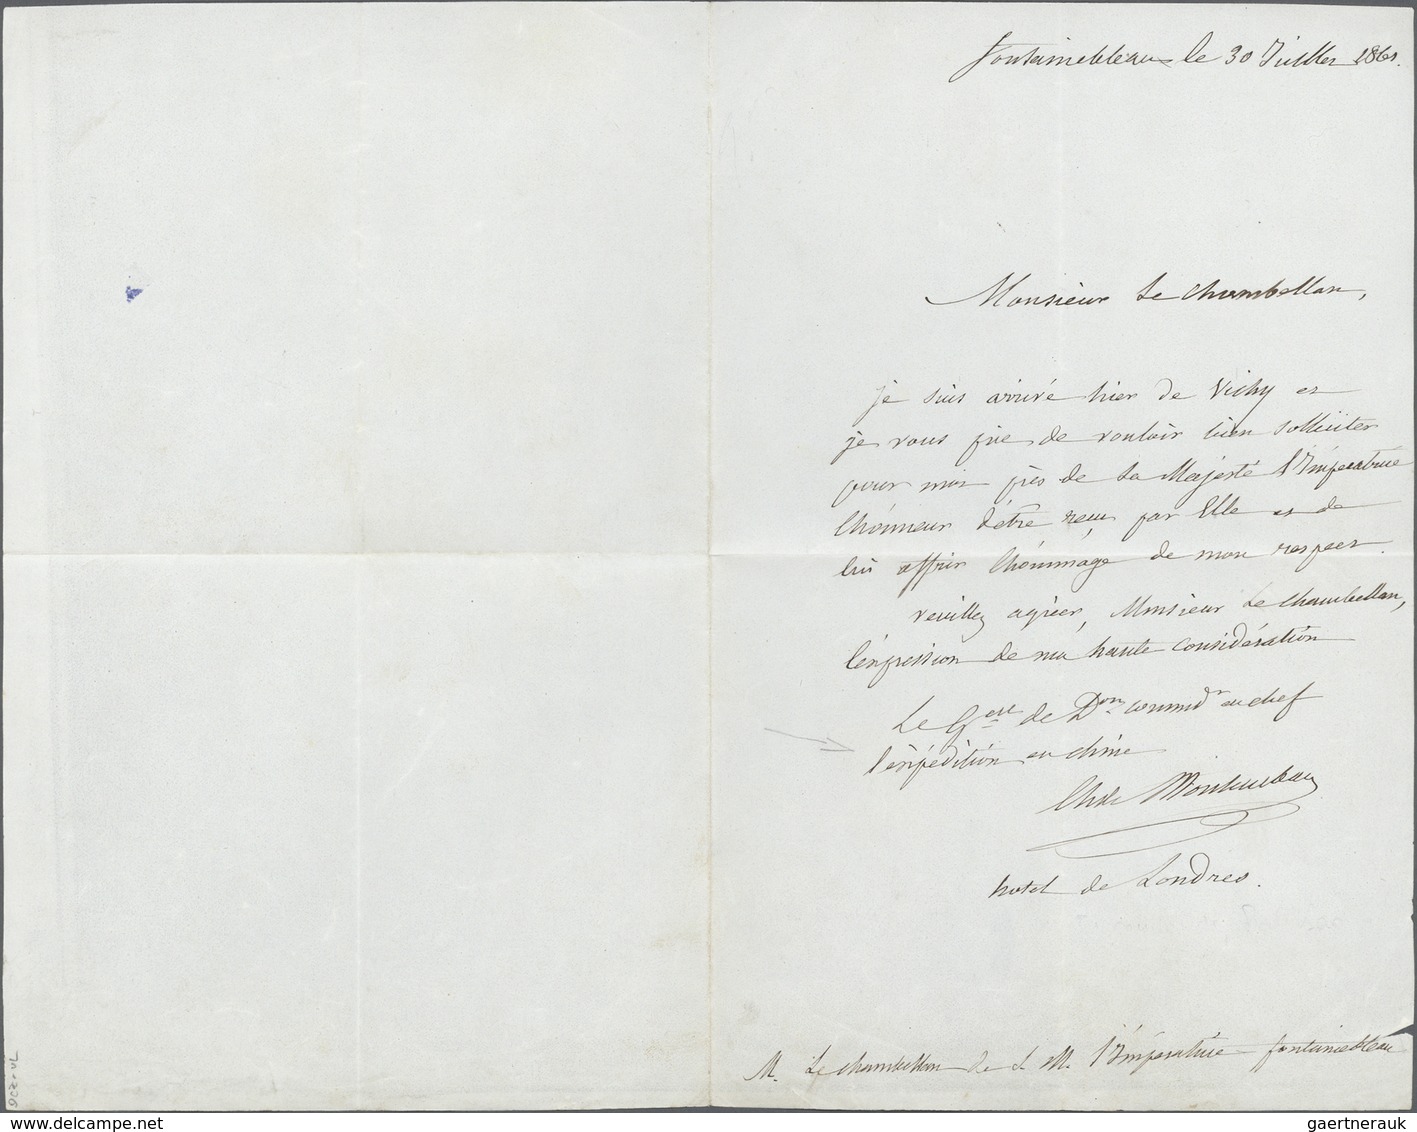 fontainebleau le 30 Juillet 1861.
Monsieur Le chambellan,
je suis arrivé hier de Vichy et
je vous prie de vouloir bien solliciter
pour moi près de Sa Majesté l'Impératrice
l'honneur d'être reçu par Elle et de
lui offrir l'hommage de mon respect.
veuillez agréer, Monsieur Le chambellan,
l'expression de ma haute considération
Le Gal de Don commdr en chef
l'expédition en chine
Ch de Montauban
hotel de Londres.
M. Le chambellan de S. M. l'Impératrice fontainebleau
delcampe.net
gaertnerauk